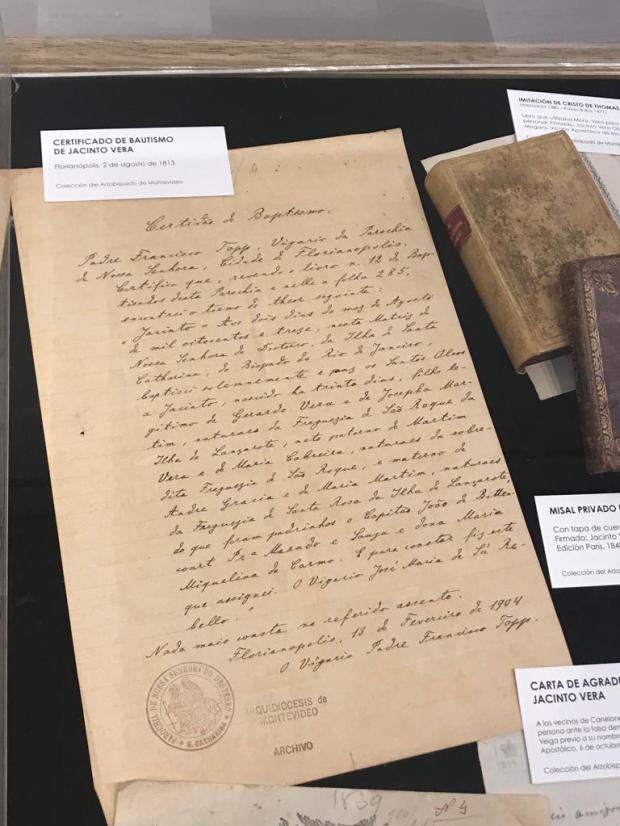 CERTIFICADO DE BAUTISMO
DE JACINTO VERA
Florianópolis, 2 de agosto de 1813
Colección del Arzobispado de Montevideo
Certidão de Baptismo.
Padre Francisco Topp, Vigario da Parochia
de Nossa Senhora, Cidade de Florianopolis.
Certifico que, revendo o livro n. 12 de Bap-
tisados desta Parochia e nelle a folha 285,
encontrei o termo do theor seguinte:
"Jacinto = Aos dois dias do mez de Agosto
de mil oitocentos e treze, nesta Matriz de
Nossa Senhora do Desterro, da Ilha de Santa
Catharina, do Bispado do Rio de Janeiro,
baptisei solennemente e puz os Santos Oleos
a Jacinto, nascido ha trinta dias, filho le-
gitimo de Gerardo Vera e de Josepha Mar-
tim, naturaes da Freguezia de São Roque da
Ilha de Lanzarote, neto paterno de Martim
Vera e de Maria Cabreira, naturaes da sobre-
dita Freguezia de São Roque, e materno de
Andre Gracia e de Maria Martim, naturaes
da Freguezia de Santa Rosa da Ilha de Lanzarote,
do que foram padrinhos o Capitão João de Bitten-
court e Souza e dona Maria
Miquelina do Carmo. E para constar fiz este
que assignei. O Vigario José Maria de Sá Re-
bello."
Nada mais consta no referido assento.
Florianopolis, 13 de Fevereiro de 1904
O Vigario Padre Francisco Topp.
PAROCHIA DE NOSSA SENHORA DO DESTERRO
S. CATHARINA
ARQUIDIOCESIS de
MONTEVIDEO
ARCHIVO
1839
Nº 4
IMITACIÓN DE CRISTO DE THOMAS
Libro que utilizaba Mons. Vera
personal. Firmado: Jacinto Vera
Megara, Vicario Apostólico de
MISAL PRIVADO
Con tapa de cuero
Firmado: Jacinto
Edición París,
Colección del
CARTA DE
JACINTO VERA
A los vecinos de
persona ante la falsa
Veiga previo a su
Apostólico, 6 de octubre
Colección del
amigo